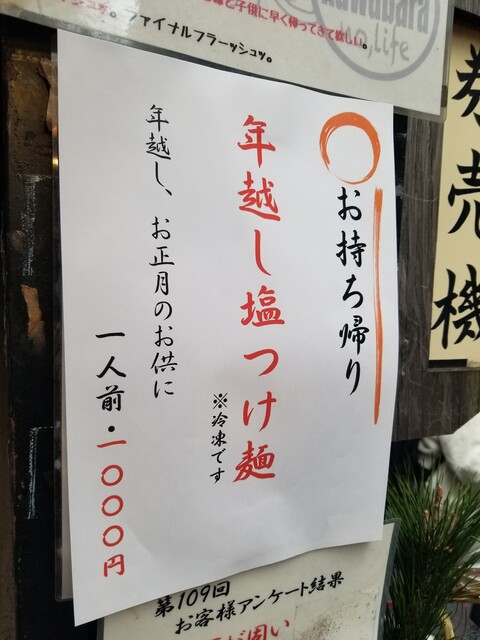 子供に早く帰ってきて欲しい。
ファイナルフラーッシュッ。
kuwabara
life
お持ち帰り
年越し塩つけ麺
※冷凍です
年越し、お正月のお供に
一人前・一〇〇〇円
券売機
第109回
お客様アンケート結果